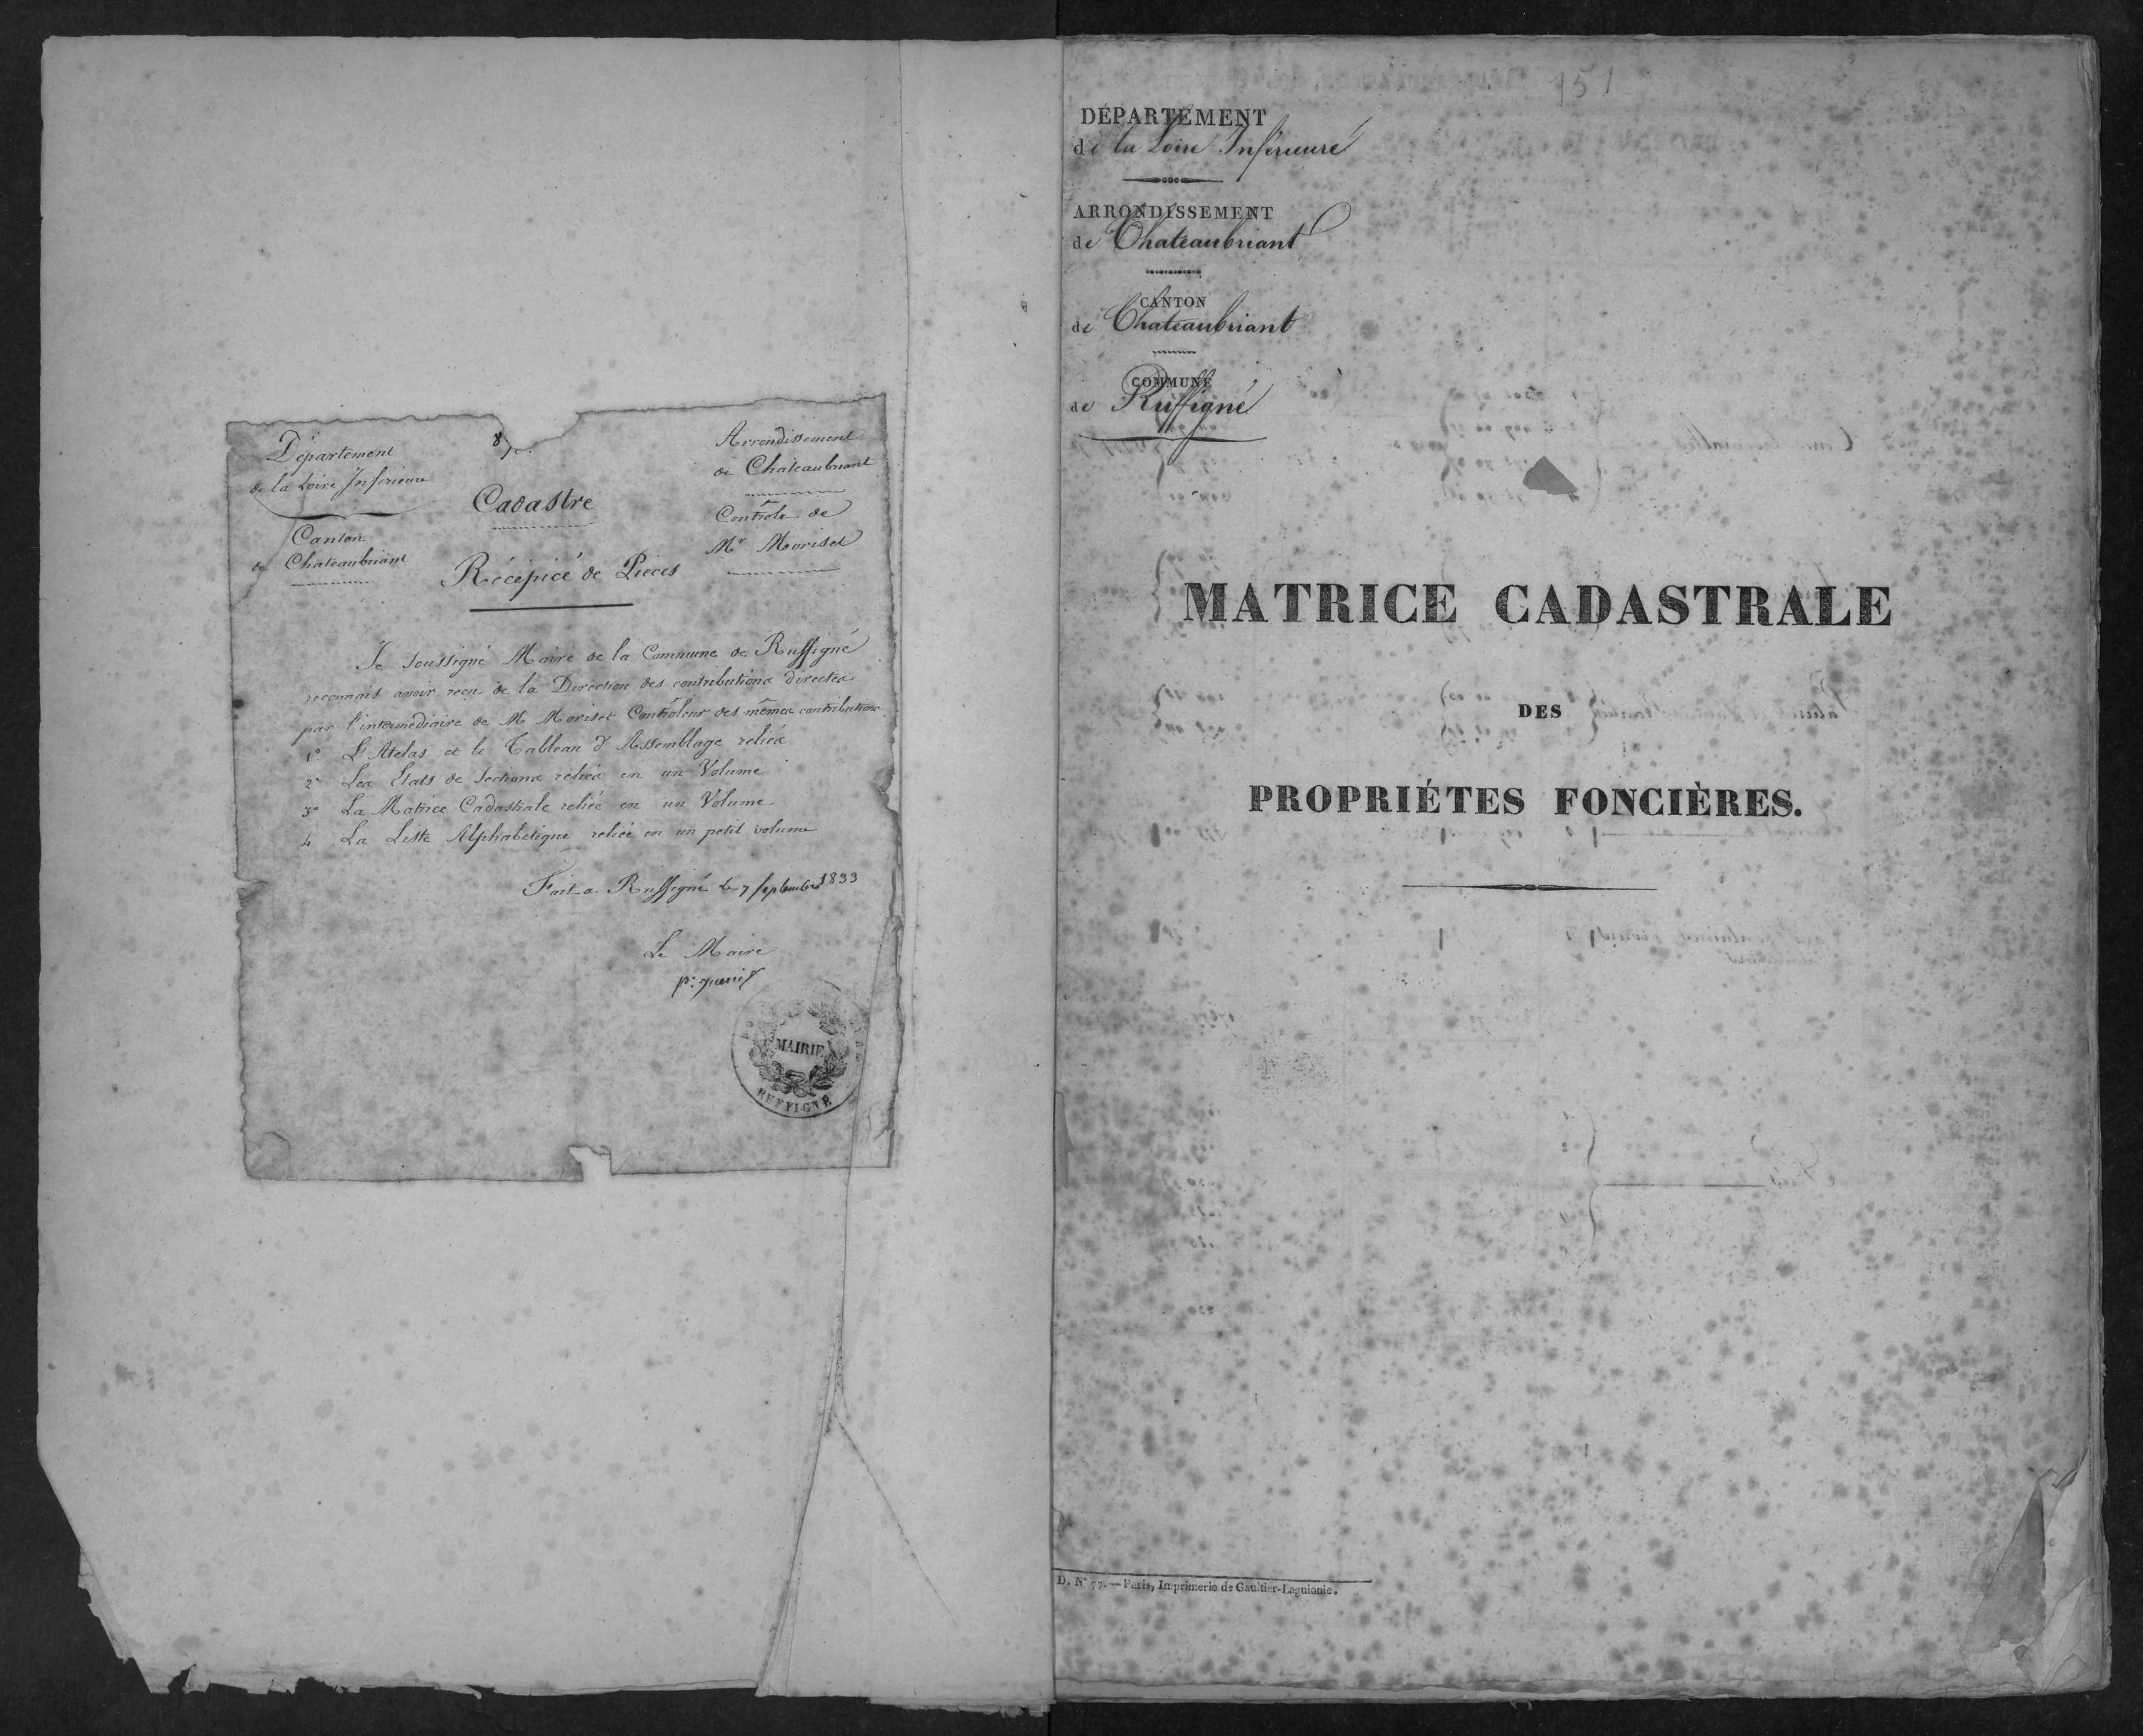 Département
de la Loire Inférieure
Canton
de Chateaubriant
8
Cadastre
Récépicé de Pieces
Arrondissement
de Chateaubriant
Contrôle de
Mr Moriset
Je soussigné Maire de la Commune de Ruffigné
reconnais avoir reçu de la Direction des contributions directes
par l'intermédiaire de M Moriset Contrôleur des mêmes contributions
1° L'Atelas et le Tableau d'Assemblage reliés
2° Les Etats de Sections reliés en un Volume
3° La Matrice Cadastrale reliée en un Volume
4 La Liste Alphabétique reliée en un petit volume
Fait a Ruffigné le 7 septembre 1833
Le Maire
MAIRIE
RUFFIGNÉ
151
DÉPARTEMENT
de la Loire Inférieure
ARRONDISSEMENT
de Chateaubriant
CANTON
de Chateaubriant
COMMUNE
de Ruffigné
MATRICE CADASTRALE
DES
PROPRIÉTES FONCIÈRES.
D. N° 77. — Paris, Imprimerie de Gaultier-Laguionie.